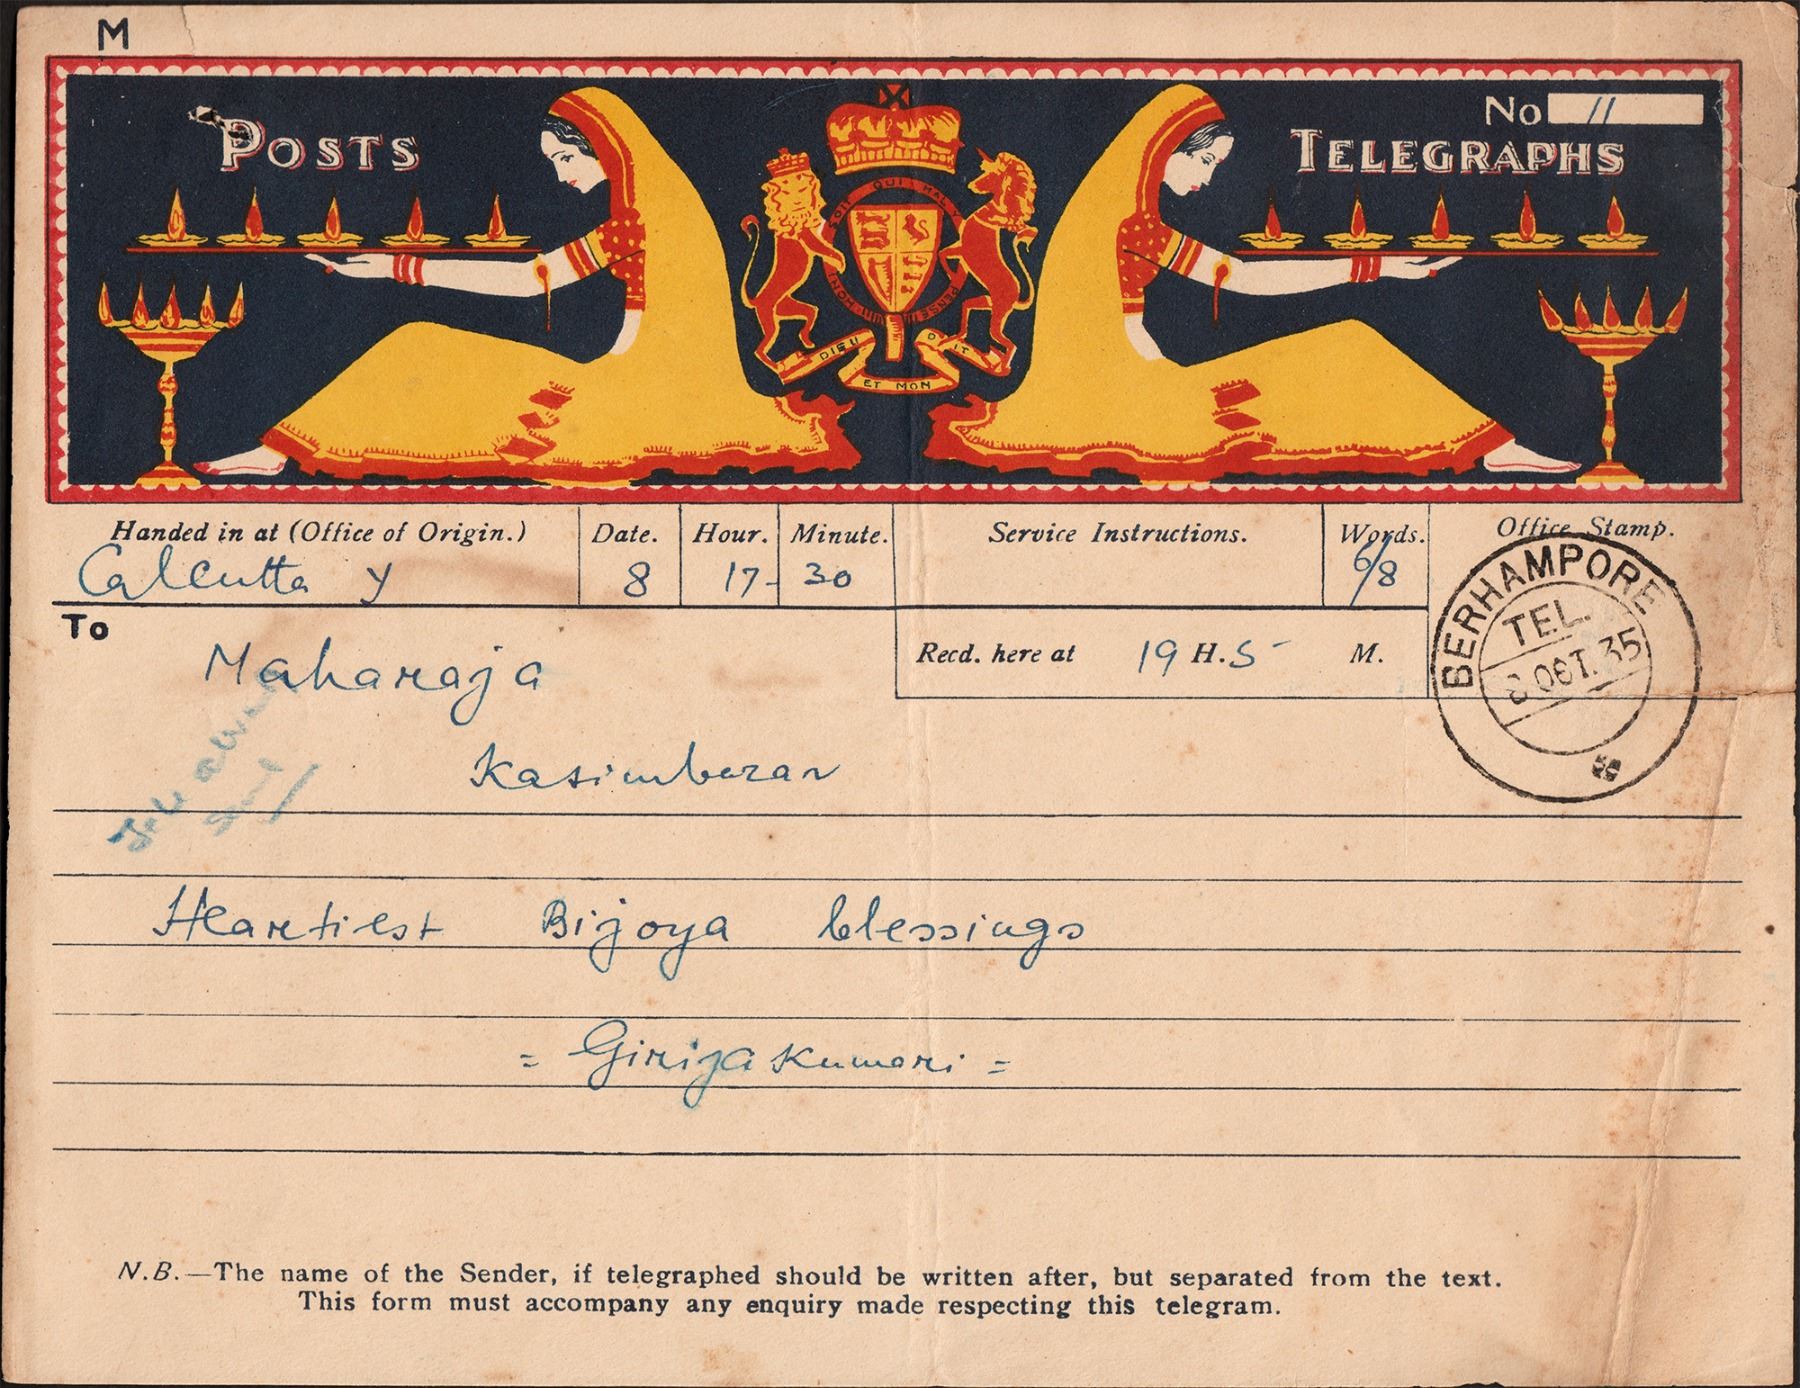 M
POSTS
No 11
TELEGRAPHS
SOIT QUI MAL Y PENSE
HONI
DIEU ET MON DROIT
Handed in at (Office of Origin.) Date. Hour. Minute. Service Instructions. Words. Office Stamp.
Calcutta y 8 17- 30 6/8
To
Recd. here at 19 H. 5- M.
BERHAMPORE
TEL.
8 OCT. 35
Maharaja
Kasimbazar
Heartiest Bijoya blessings
= Girija Kumari =
N.B.—The name of the Sender, if telegraphed should be written after, but separated from the text.
This form must accompany any enquiry made respecting this telegram.